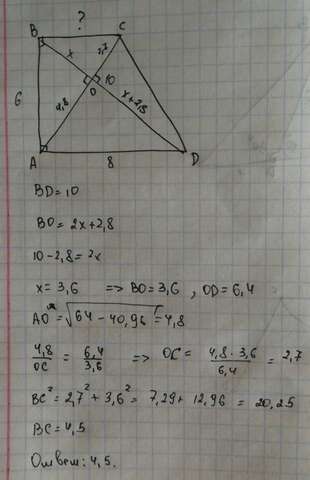 ?
B C
x 2,7
6 O 10
4,8 x+2,8
A 8 D
BD=10
BO = 2x+2,8
10-2,8=2x
x= 3,6 => BO=3,6 , OD=6,4
AO = √64-40,96 = 4,8
4,8/OC = 6,4/3,6 => OC = 4,8·3,6/6,4 = 2,7
BC² = 2,7² + 3,6² = 7,29 + 12,96 = 20,25
BC = 4,5
Ответ: 4,5.